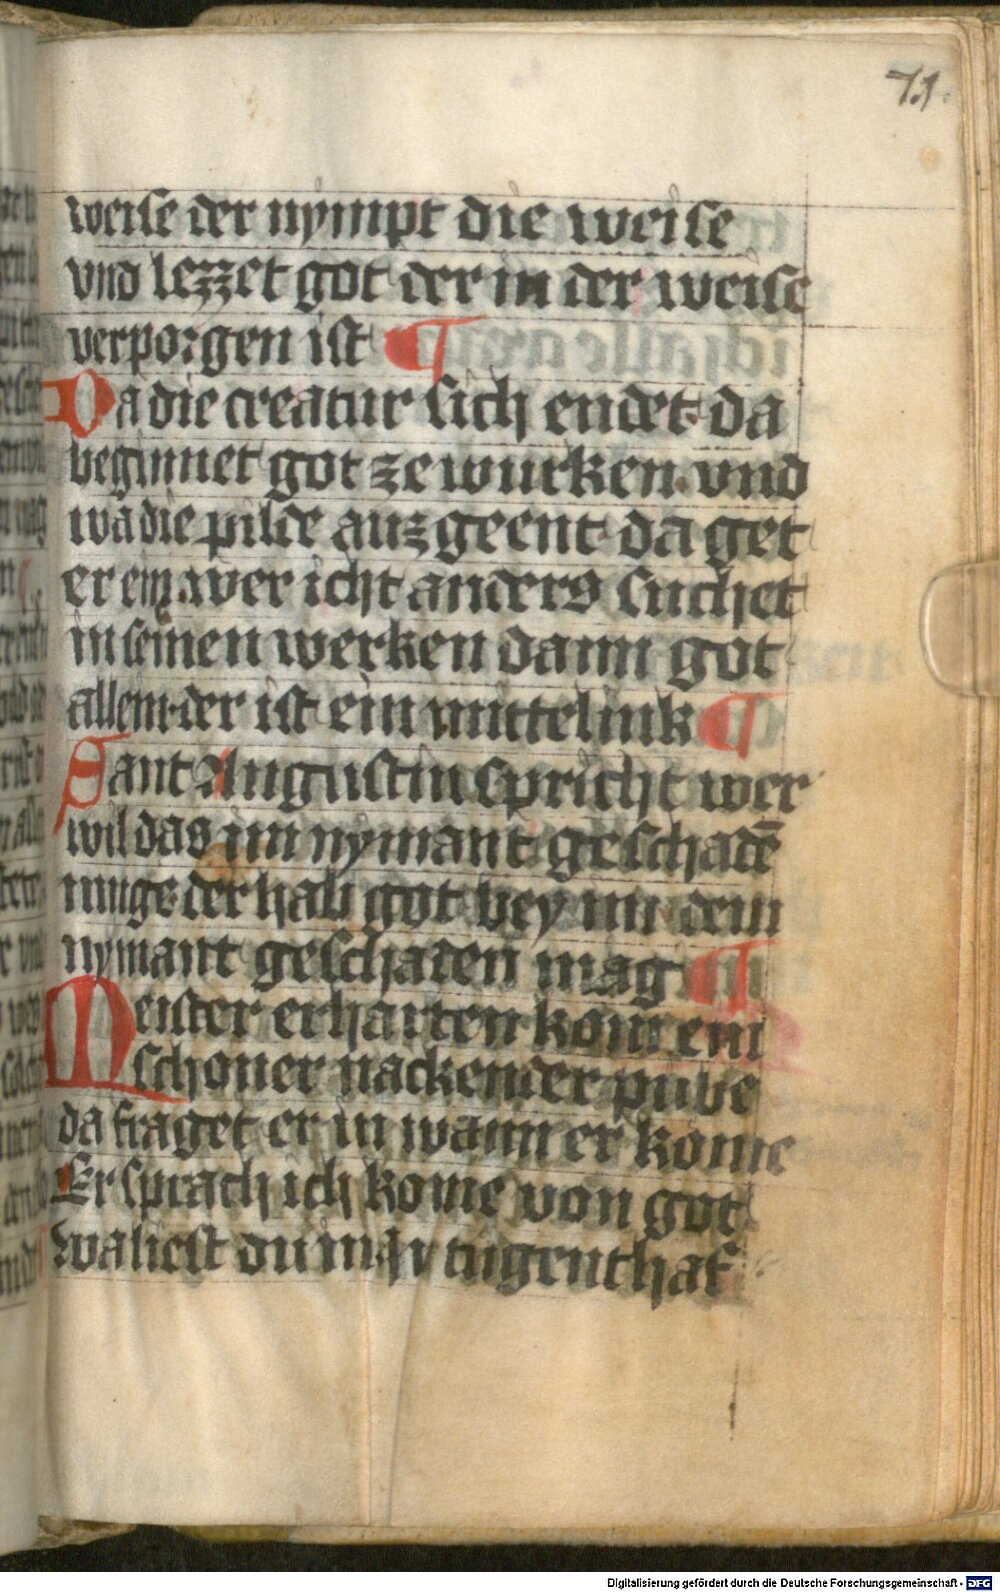 71.
weise der nympt die weise
vnd lezzet got der in der weise
verporgen ist ¶
Da die creatur sich endet da
beginnet got ze wurken vnd
wa die pilde auz geent da get
er ein. wer icht anders suchet
in seinen werken dann got
allein der ist ein mittelink ¶
Sant Augustin spricht wer
wil das im nymant geschadē
muge der hab got bey im dem
nymant geschaden mag ¶
Meister ekharten kom ein
schoner nackender pube
da fraget er in wann er kome
Er sprach ich kome von got
wa liest du in In tugenthaf
Digitalisierung gefördert durch die Deutsche Forschungsgemeinschaft - DFG